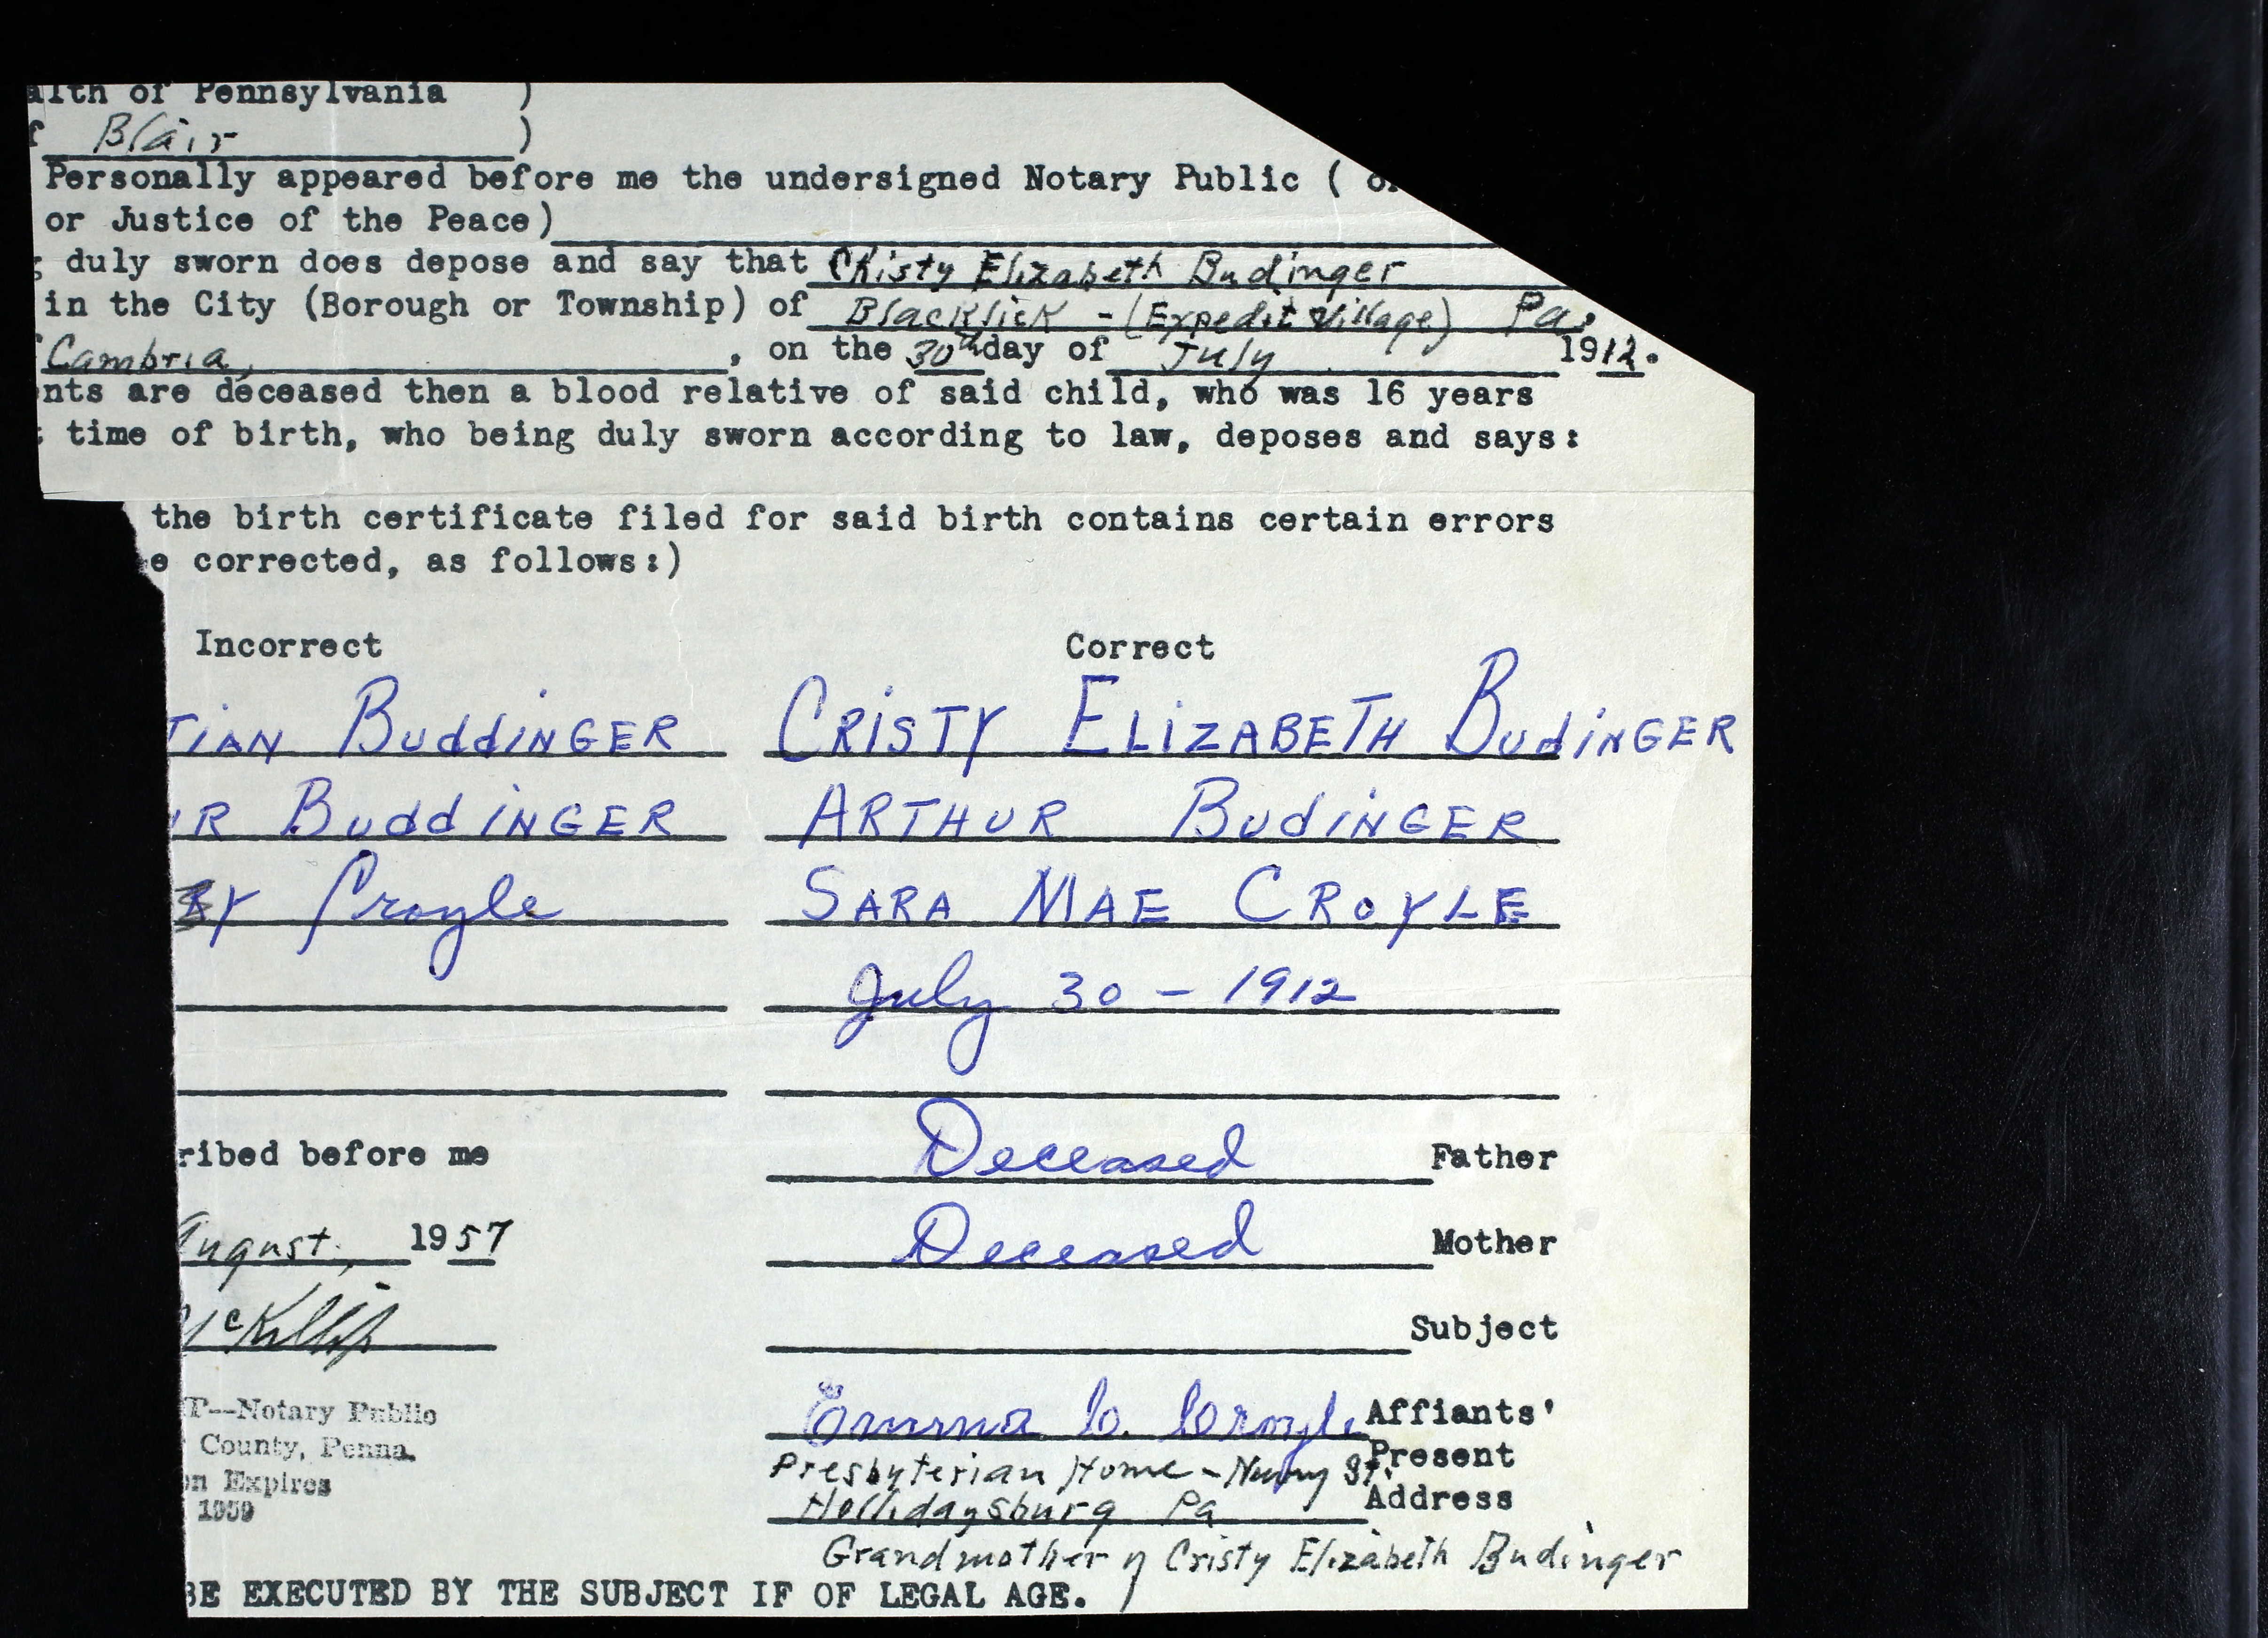 alth of Pennsylvania )
f Blair )
Personally appeared before me the undersigned Notary Public ( or
or Justice of the Peace)
duly sworn does depose and say that Christy Elizabeth Budinger
in the City (Borough or Township) of Blacklick - (Expedit Village) Pa.
Cambria, , on the 30th day of July 1912.
nts are deceased then a blood relative of said child, who was 16 years
time of birth, who being duly sworn according to law, deposes and says:
the birth certificate filed for said birth contains certain errors
e corrected, as follows:)
Incorrect Correct
TIAN BUddiNGER CRISTY ELIZABETH BudiNGER
R BUddiNGER ARTHUR BUdiNGER
Y Croyle SARA MAE CROYLE
July 30 - 1912
ribed before me Deceased Father
August, 1957 Deceased Mother
McKillip Subject
T--Notary Public Emma C. Croyle Affiants'
County, Penna. Presbyterian Home - St. Present
on Expires Hollidaysburg Pa Address
1959
Grandmother of Cristy Elizabeth Budinger
BE EXECUTED BY THE SUBJECT IF OF LEGAL AGE.